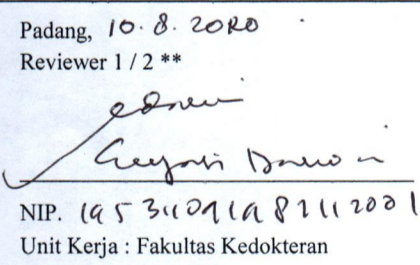 Padang, 10.8.2020
Reviewer 1 / 2 **
NIP. 195311091982112001
Unit Kerja : Fakultas Kedokteran